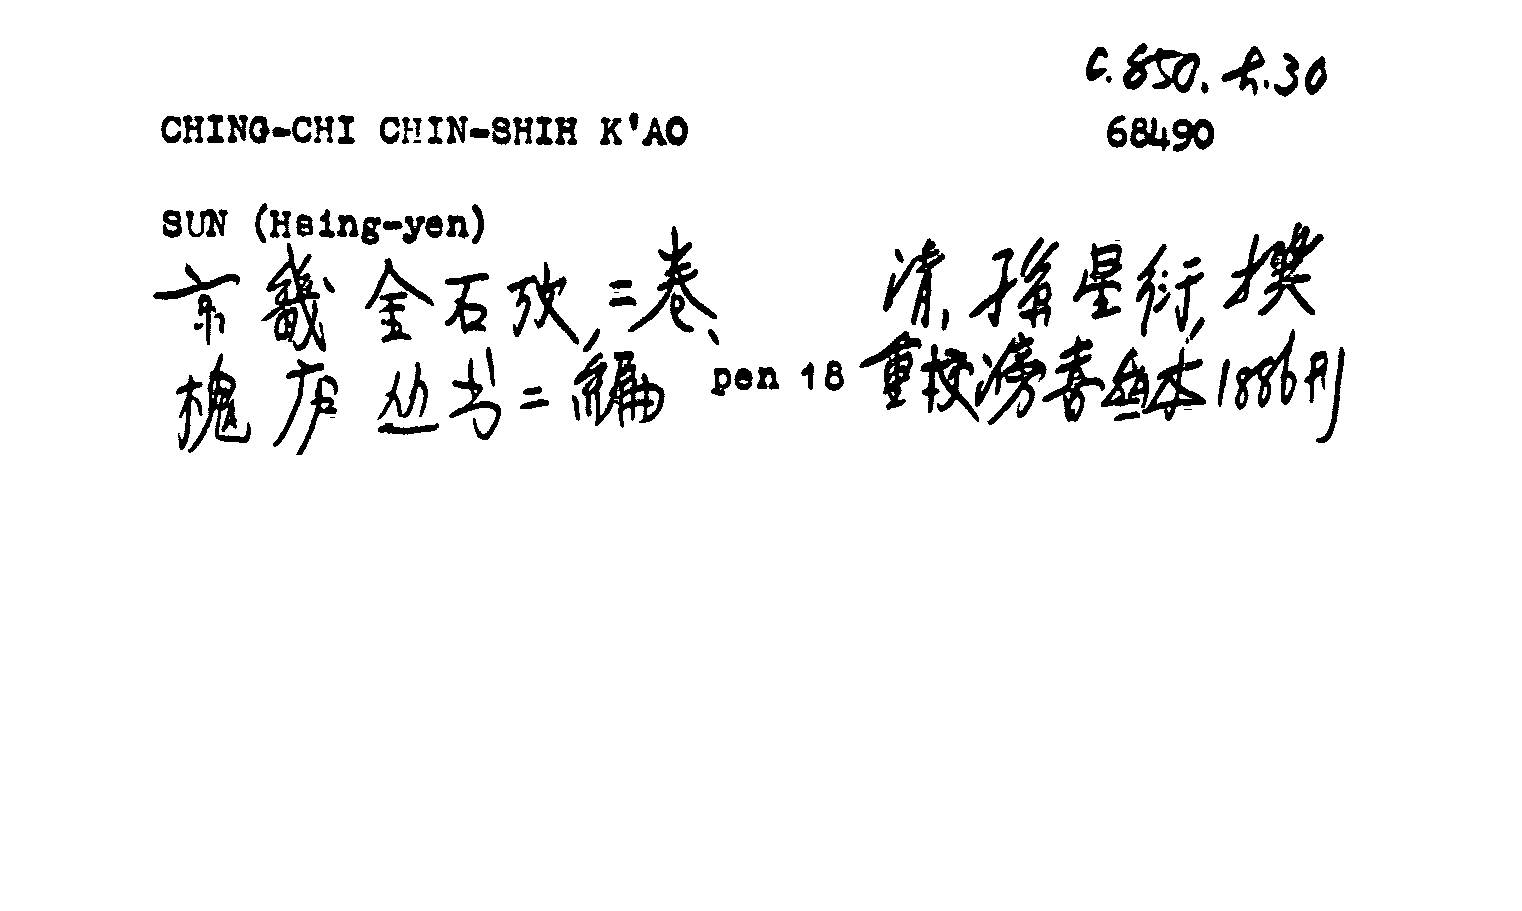 c.850.h.30
CHING-CHI CHIN-SHIH K'AO
68490
SUN (Hsing-yen)
京畿金石攷, 二卷, 清, 孫星衍, 撰
槐庐丛书二編 pen 18 重校滂喜齋本, 1886刋